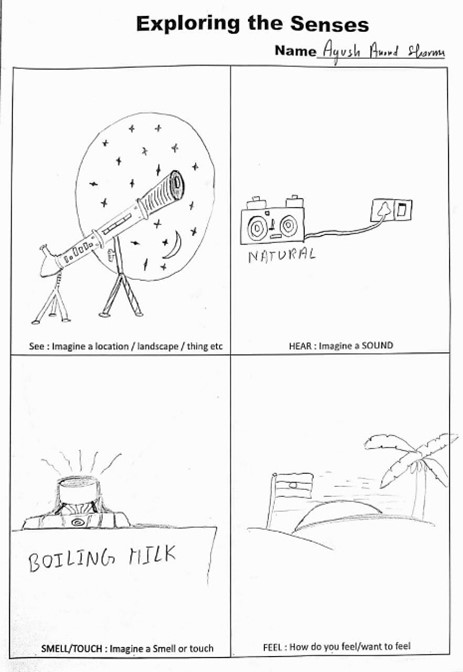 Exploring the Senses
Name Ayush Anand Sharma
NATURAL
See : Imagine a location / landscape / thing etc
HEAR : Imagine a SOUND
BOILING MILK
SMELL/TOUCH : Imagine a Smell or touch
FEEL : How do you feel/want to feel